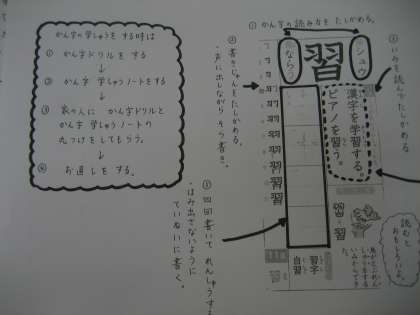 かん字の学しゅうをする時は
① かん字ドリルを する
↓
② かん字 学しゅうノートをする
↓
③ 家の人に かん字ドリルと
かん字 学しゅうノートの
丸つけをしてもらう。
↓
④ お直しを する。
① かん字の読みかたを たしかめる。
シュウ
習
なら う
② いみを読んで たしかめる。
漢字を学習する。
ピアノを習う。
③ 書きじゅんを たしかめる。
・声に出しながら そら書き。
習字
自習
四回書いて れんしゅうする
・はみ出さないように
ていねいに書く。
読むと
おもしろいよ。